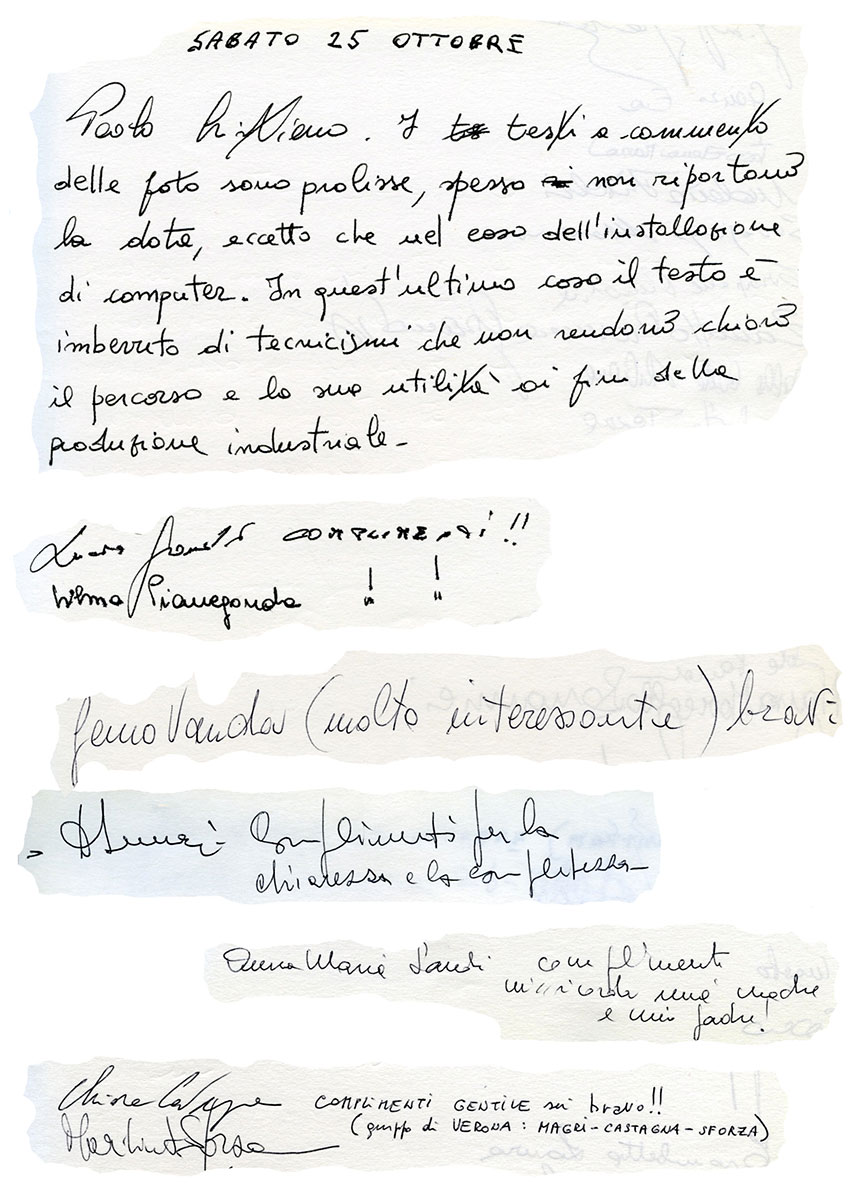 SABATO 25 OTTOBRE
Paolo . I testi a commento
delle foto sono prolisse, spesso non riportano
la data, eccetto che nel caso dell'installazione
di computer. In quest'ultimo caso il testo è
imbevuto di tecnicismi che non rendono chiaro
il percorso e la sua utilità ai fini della
produzione industriale -
COMPLIMENTI !!
Wilma Pianegonda ! !
Vanda (molto interessante) bravi
Complimenti per la
chiarezza e la completezza
Anna Maria complimenti
mi ricorda mia madre
e mio padre!
Chiara COMPLIMENTI GENTILE sei bravo!!
Sforza (gruppo di VERONA : MAGRI - CASTAGNA - SFORZA)